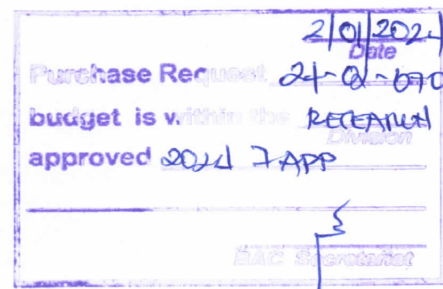 2/01/2024
Date
Purchase Request 24-02-070
budget is within the RESEARCH
Division
approved 2024 APP
BAC Secretariat